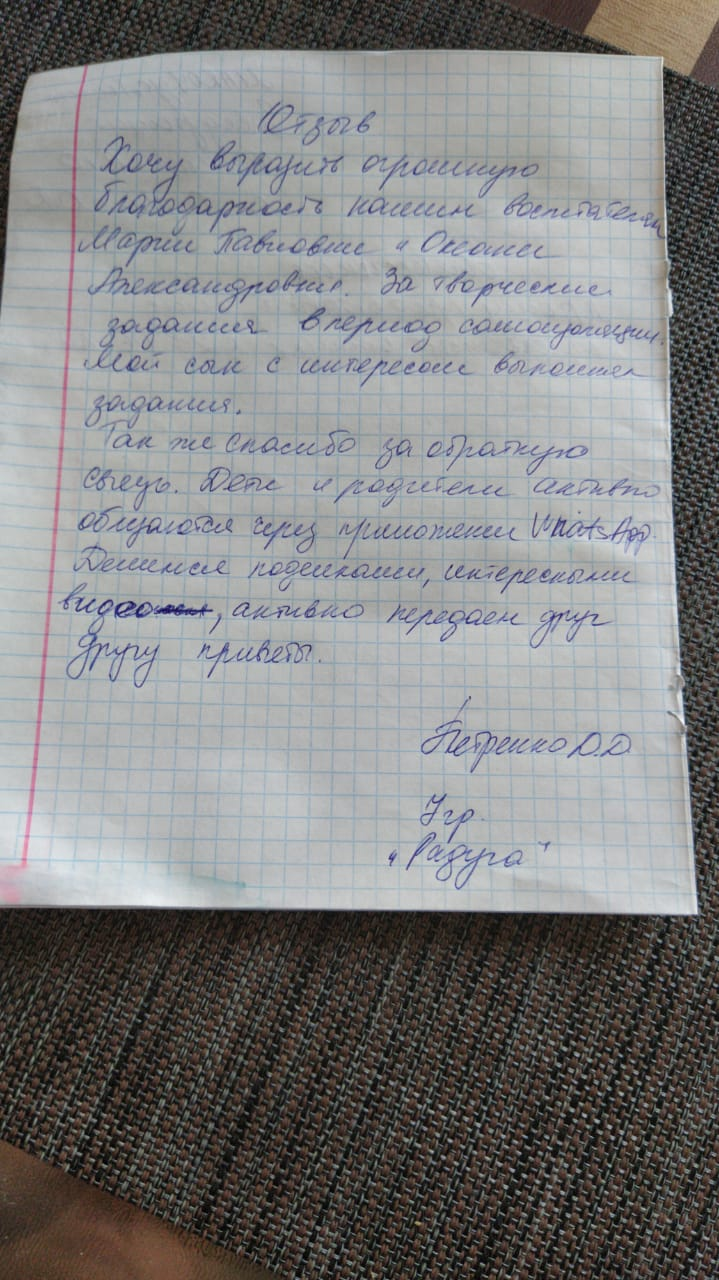 Отзыв
Хочу выразить огромную
благодарность нашим воспитателям
Марии Павловне и Оксане
Александровне. За творческие
задания в период самоизоляции.
Мой сын с интересом выполнял
задания.
Так же спасибо за обратную
связь. Дети и родители активно
общаются через приложении WhatsApp.
Делимся поделками, интересными
видео, активно передаем друг
другу приветы.
Петренко Д.Д
7 гр.
"Радуга"